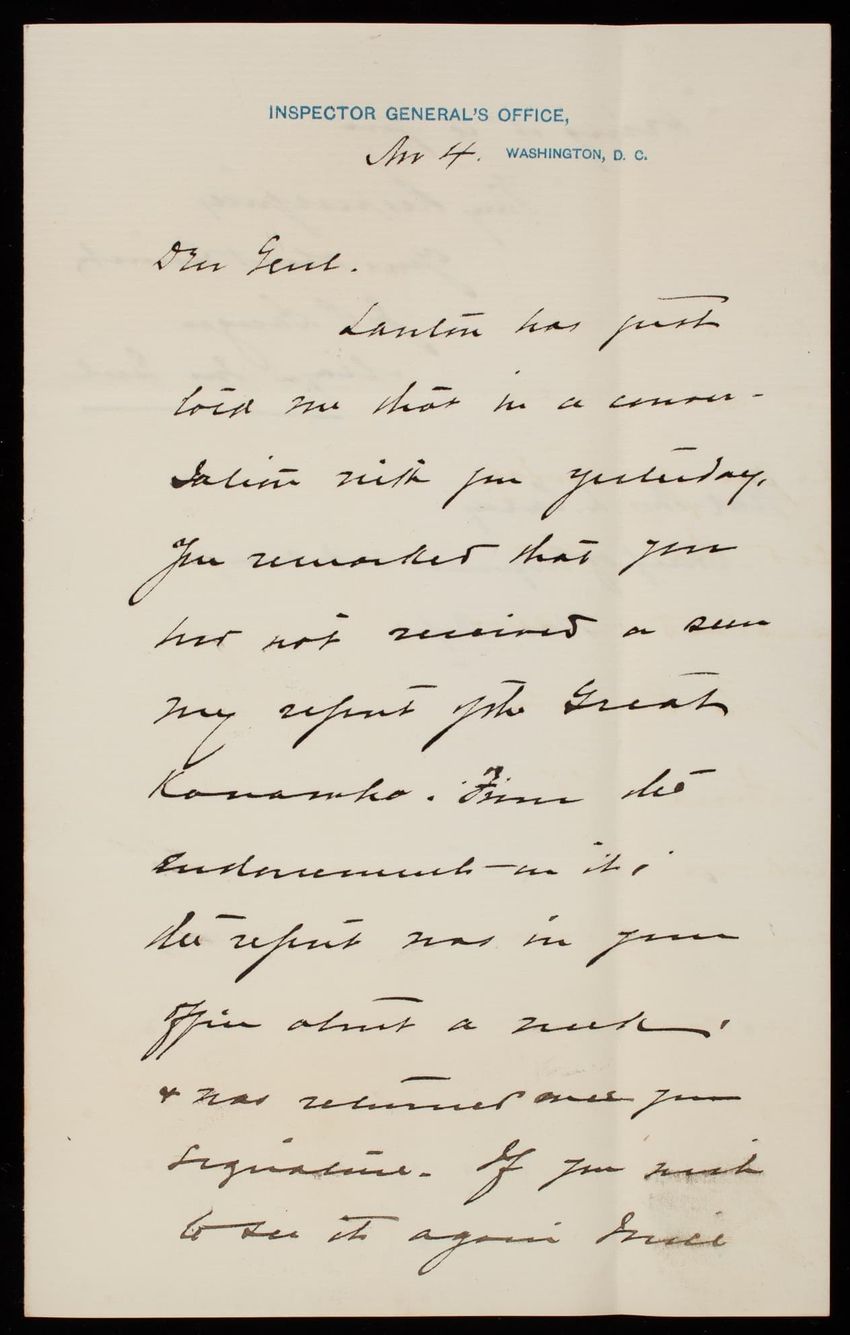 INSPECTOR GENERAL'S OFFICE,
Nov 4. WASHINGTON, D. C.
Dear Genl.
Lawton has just
told me that in a conver-
sation with you yesterday,
you remarked that you
had not received or seen
my report of the Great
Kanawha. From the
endorsements on it,
the report was in your
office about a week,
& was returned over your
signature. If you wish
to see it again I will